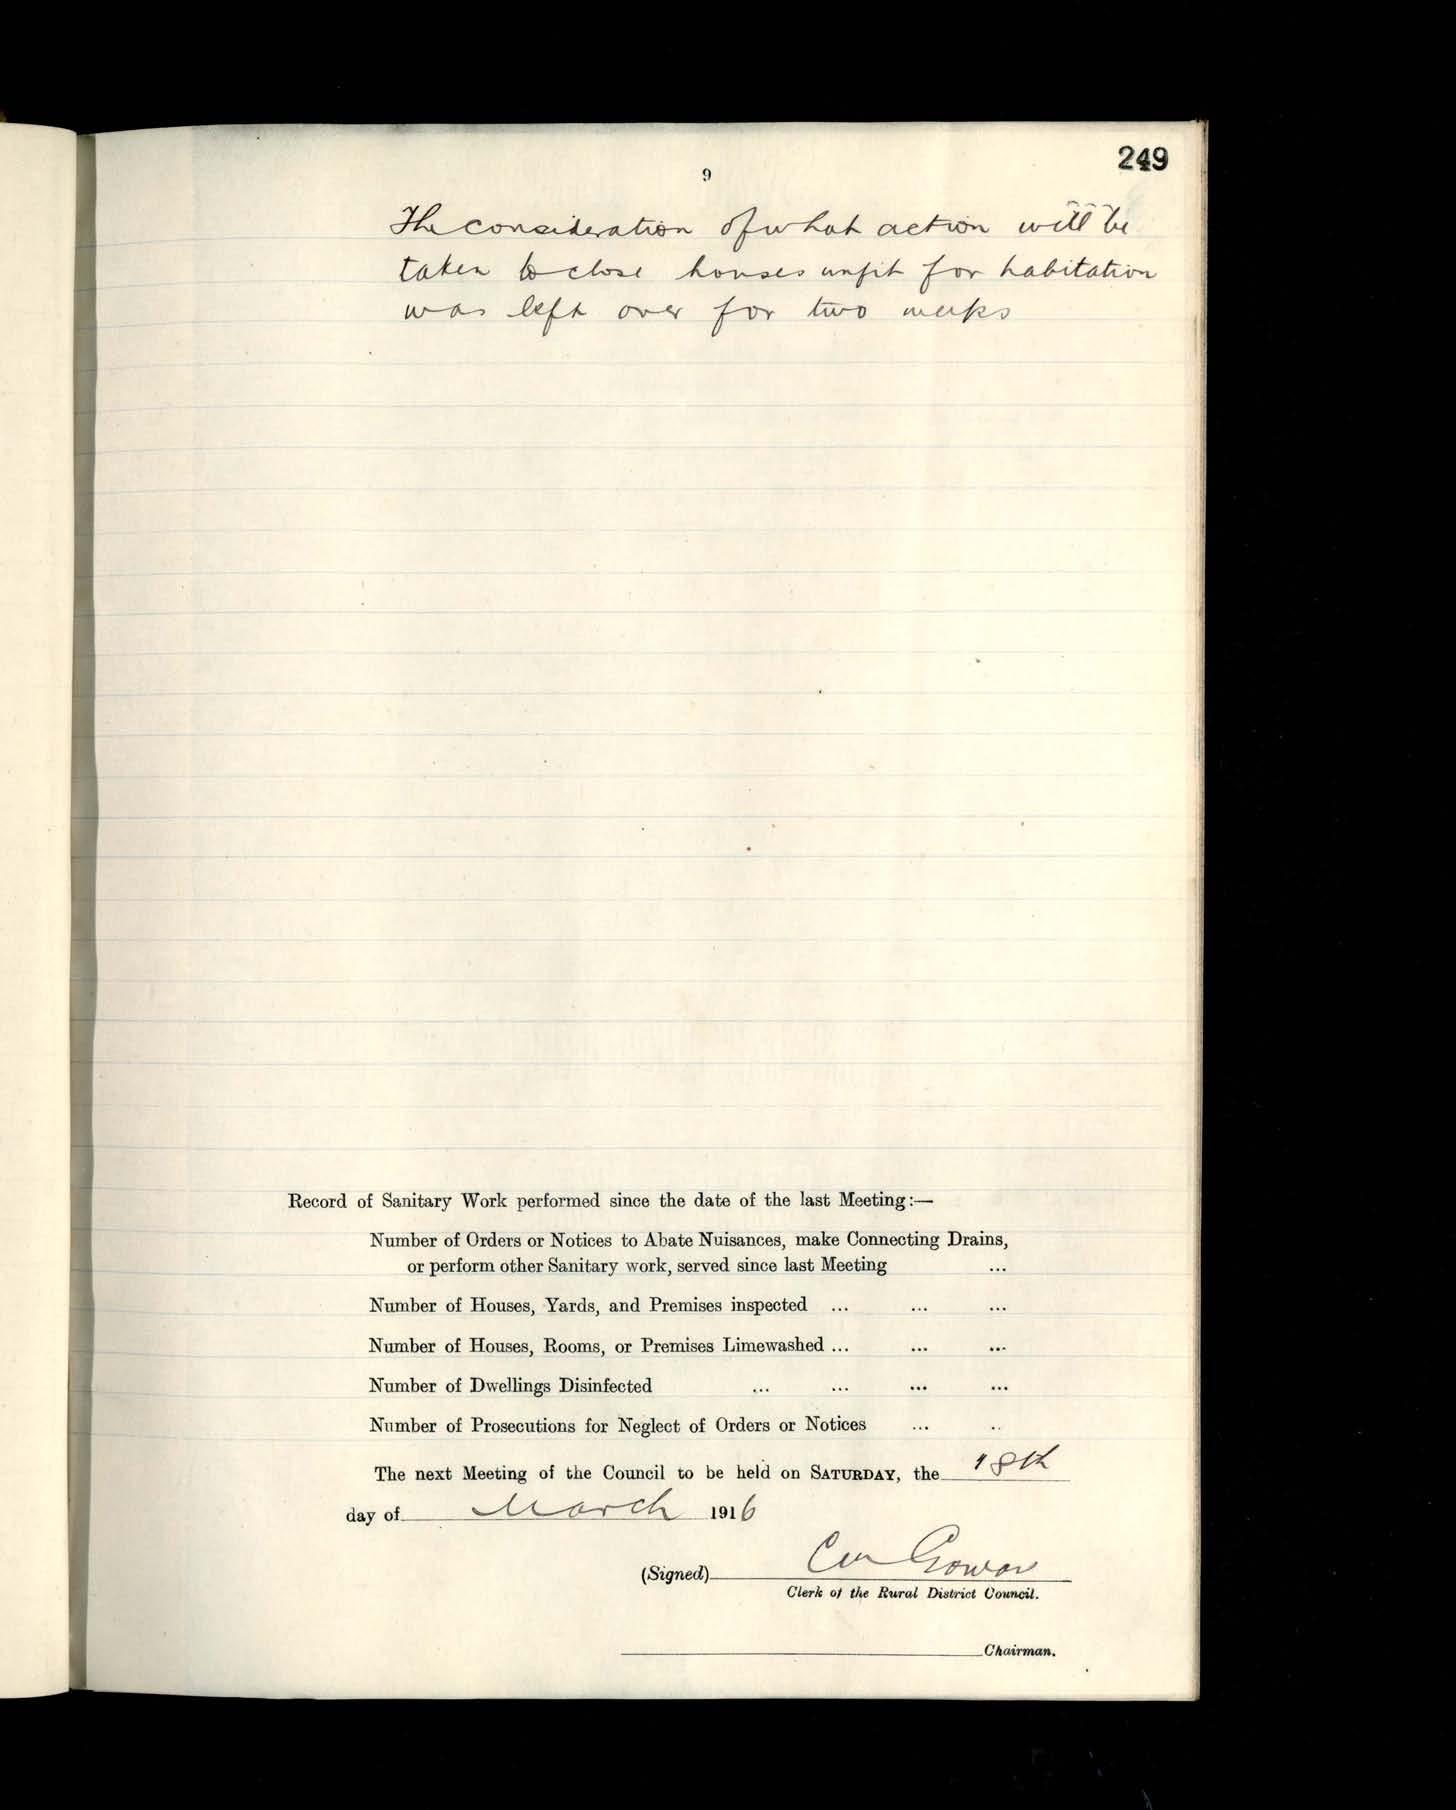 249
9
The consideration of what action will be
taken to close houses unfit for habitation
was left over for two weeks
Record of Sanitary Work performed since the date of the last Meeting:—
Number of Orders or Notices to Abate Nuisances, make Connecting Drains,
or perform other Sanitary work, served since last Meeting ...
Number of Houses, Yards, and Premises inspected ... ... ...
Number of Houses, Rooms, or Premises Limewashed ... ... ...
Number of Dwellings Disinfected ... ... ... ...
Number of Prosecutions for Neglect of Orders or Notices ... ..
The next Meeting of the Council to be held on SATURDAY, the 18th
day of March 1916
(Signed) Gowan
Clerk of the Rural District Council.
Chairman.